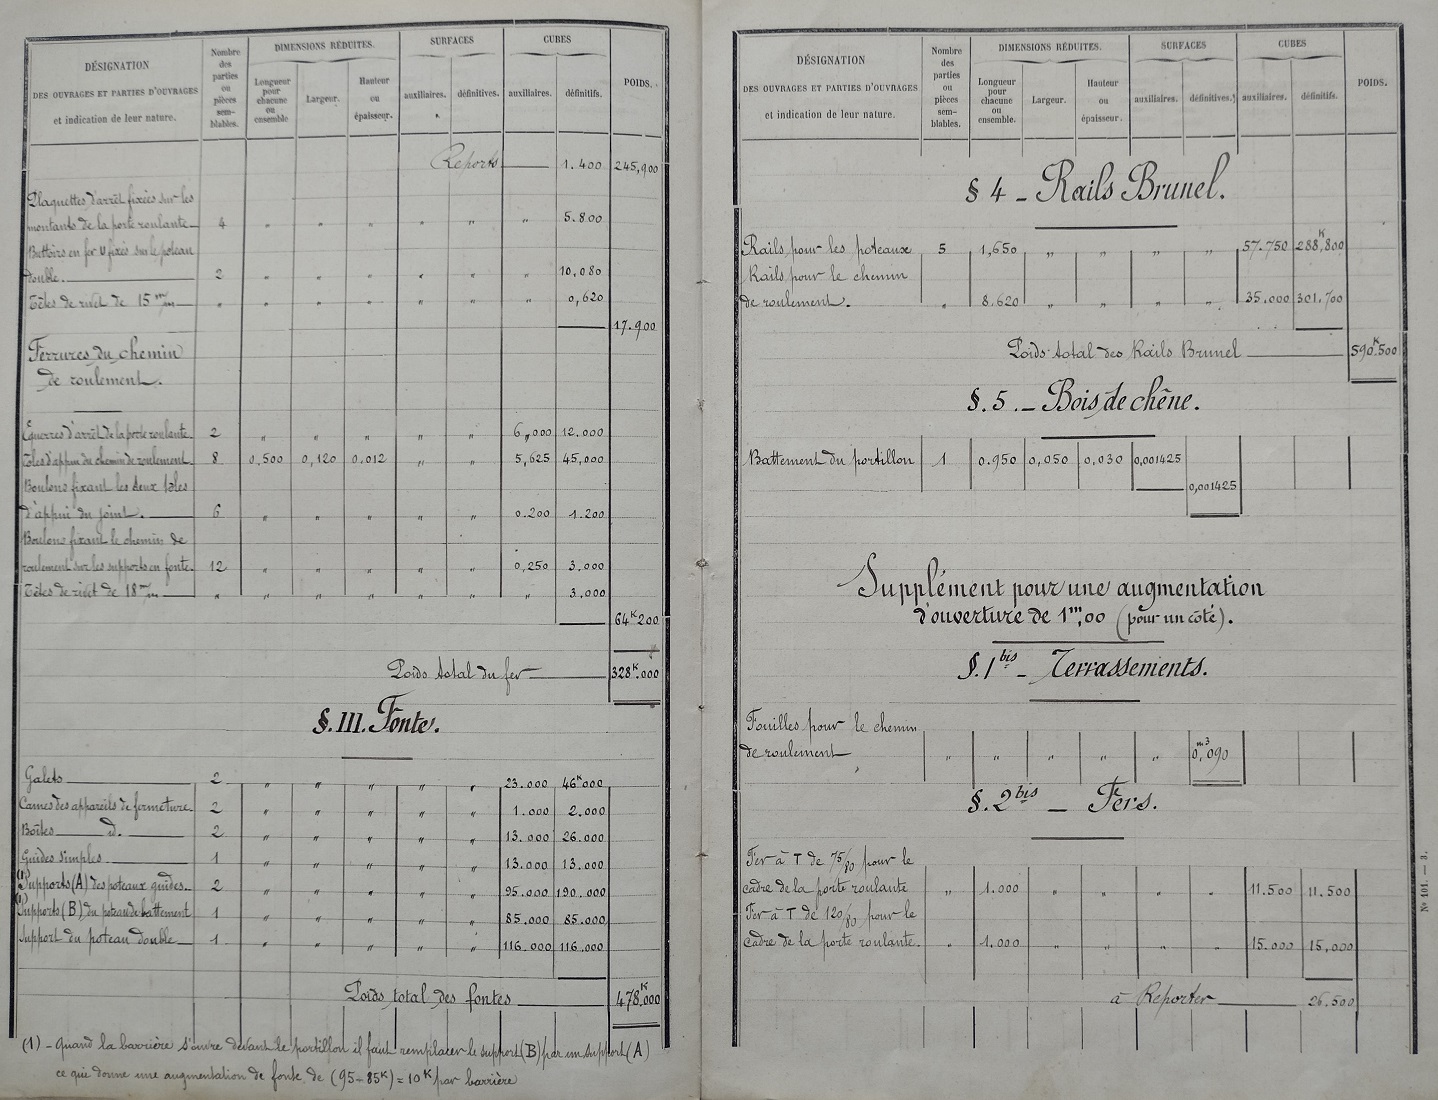 DÉSIGNATION
DES OUVRAGES ET PARTIES D'OUVRAGES
et indication de leur nature.
Nombre des parties ou pièces sem-blables.
DIMENSIONS RÉDUITES.
Longueur pour chacune ou ensemble
Largeur.
Hauteur ou épaisseur.
SURFACES
auxiliaires.
définitives.
CUBES
auxiliaires.
définitifs.
POIDS.
Reports 1.400 245,900
Plaquettes d'arrêt fixées sur les
montants de la porte roulante 4 " " " " " " 5.800
Battoirs en fer U fixés sur le poteau
double 2 " " " " " " 10,080
Têtes de rivet de 15 m/m " " " " " " " 0,620
17.900
Ferrures du chemin
de roulement.
Equerres d'arrêt de la porte roulante. 2 " " " " " 6,000 12.000
Tôles d'appui du chemin de roulement 8 0,500 0,120 0,012 " " 5,625 45,000
Boulons fixant les deux tôles
d'appui du joint. 6 " " " " " 0.200 1.200
Boulons fixant le chemin de
roulement sur les supports en fonte. 12 " " " " " 0,250 3.000
Têtes de rivet de 18 m/m " " " " " " " 3.000
64K200
Poids total du fer 328K.000
§. III. Fonte.
Galets 2 " " " " " 23.000 46K000
Cames des appareils de fermeture. 2 " " " " " 1.000 2.000
Boîtes d°. 2 " " " " " 13.000 26.000
Guides simples 1 " " " " " 13.000 13.000
(1) Supports (A) des poteaux guides. 2 " " " " " 95.000 190.000
(1) Supports (B) du poteau de battement 1 " " " " " 85.000 85.000
Support du poteau double 1 " " " " " 116.000 116.000
Poids total des fontes 478K.000
(1) - Quand la barrière s'ouvre devant le portillon il faut remplacer le support (B) par un support (A)
ce qui donne une augmentation de fonte de (95-85K) = 10K par barrière
DÉSIGNATION
DES OUVRAGES ET PARTIES D'OUVRAGES
et indication de leur nature.
Nombre des parties ou pièces sem-blables.
DIMENSIONS RÉDUITES.
Longueur pour chacune ou ensemble.
Largeur.
Hauteur ou épaisseur.
SURFACES
auxiliaires.
définitives.
CUBES
auxiliaires.
définitifs.
POIDS.
§ 4 - Rails Brunel.
Rails pour les poteaux 5 1,650 " " " " 57.750 288K,800
Rails pour le chemin
de roulement. " 8.620 " " " " 35.000 301.700
Poids total des Rails Brunel 590K.500
§. 5. - Bois de chêne.
Battement du portillon 1 0.950 0,050 0,030 0,001425
0,001425
Supplément pour une augmentation
d'ouverture de 1m,00 (pour un côté).
§. 1 bis - Terrassements.
Fouilles pour le chemin
de roulement " " " " " 0,m3090
§. 2 bis - Fers.
Fer à T de 75/80 pour le
cadre de la porte roulante " 1.000 " " " " 11.500 11.500
Fer à T de 120/80 pour le
cadre de la porte roulante. " 1.000 " " " " 15.000 15,000
à Reporter 26.500
N° 101. — 3.